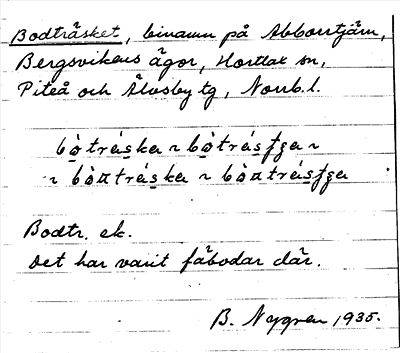 Bodträsket, binamn på Abborrtjärn,
Bergsvikens ägor, Hortlax sn,
Piteå och Älvsby tg, Norrb. l.
bò̀tráska ~ bò̀trásʃga ~
~ bò̀ntráska ~ bò̀ntrásʃga
Bodtr. ek.
Det har varit fäbodar där.
B. Nygren 1935.